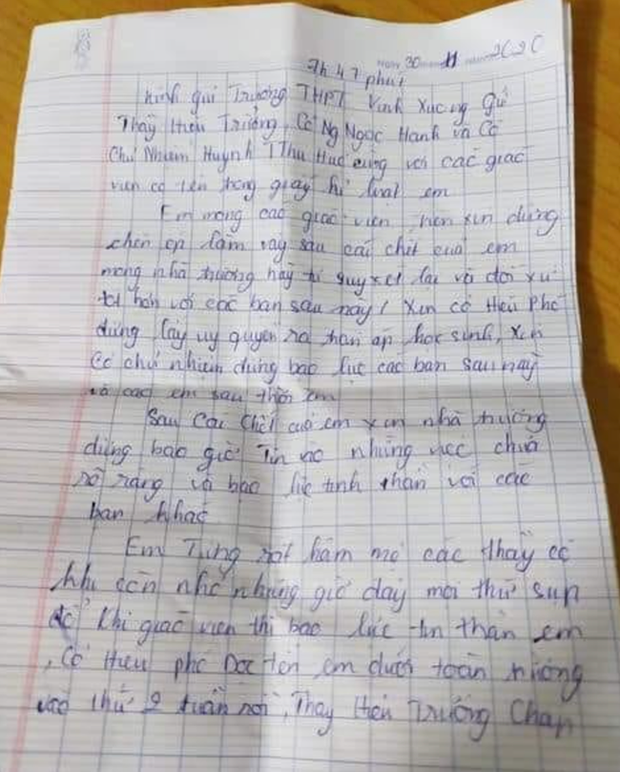 7h 47 phút Ngày 30 11 2020
Kính gửi Trường THPT Vĩnh Xương Gửi
Thầy Hiệu Trưởng, Cô Ng Ngọc Hạnh và Cô
Chủ Nhiệm Huỳnh T Thu Huệ cùng với các giáo
viên có tên trong giấy kỉ luật em
Em mong các giáo viên nên xin đừng
chèn ép lắm vậy sau cái chết của em
mong nhà trường hãy suy xét lại và đối xử
tốt hơn với các bạn sau này! Xin cô Hiệu Phó
đừng lấy uy quyền ra trấn áp học sinh, xin
cô chủ nhiệm đừng bạo lực các bạn sau này
và các em sau thời em
Sau cái chết của em xin nhà trường
đừng bao giờ tin vào những việc chưa
rõ ràng và bạo lực tinh thần với các
bạn khác
Em Từng rất hâm mộ các thầy cô
khi còn nhỏ nhưng giờ đây mọi thứ sụp
đổ khi giáo viên thì bạo lực tin thần em
, Cô Hiệu phó Đọc tên em dưới toàn trường
vào thứ 2 tuần rồi, Thầy Hiệu Trưởng Chấn